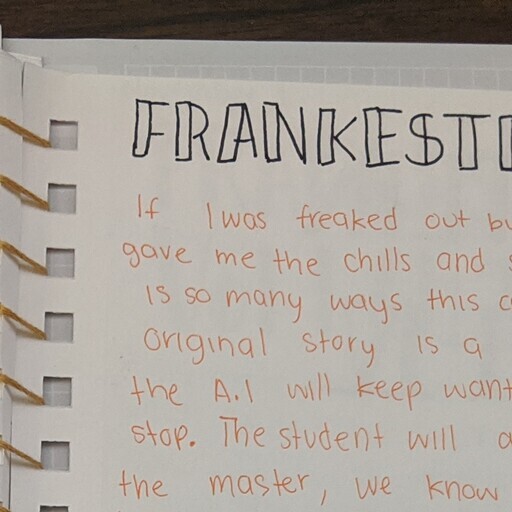 FRANKEST
If I was freaked out
gave me the chills and
is so many ways this
original story is a
the A.I will keep
stop. The student will
the master, we know